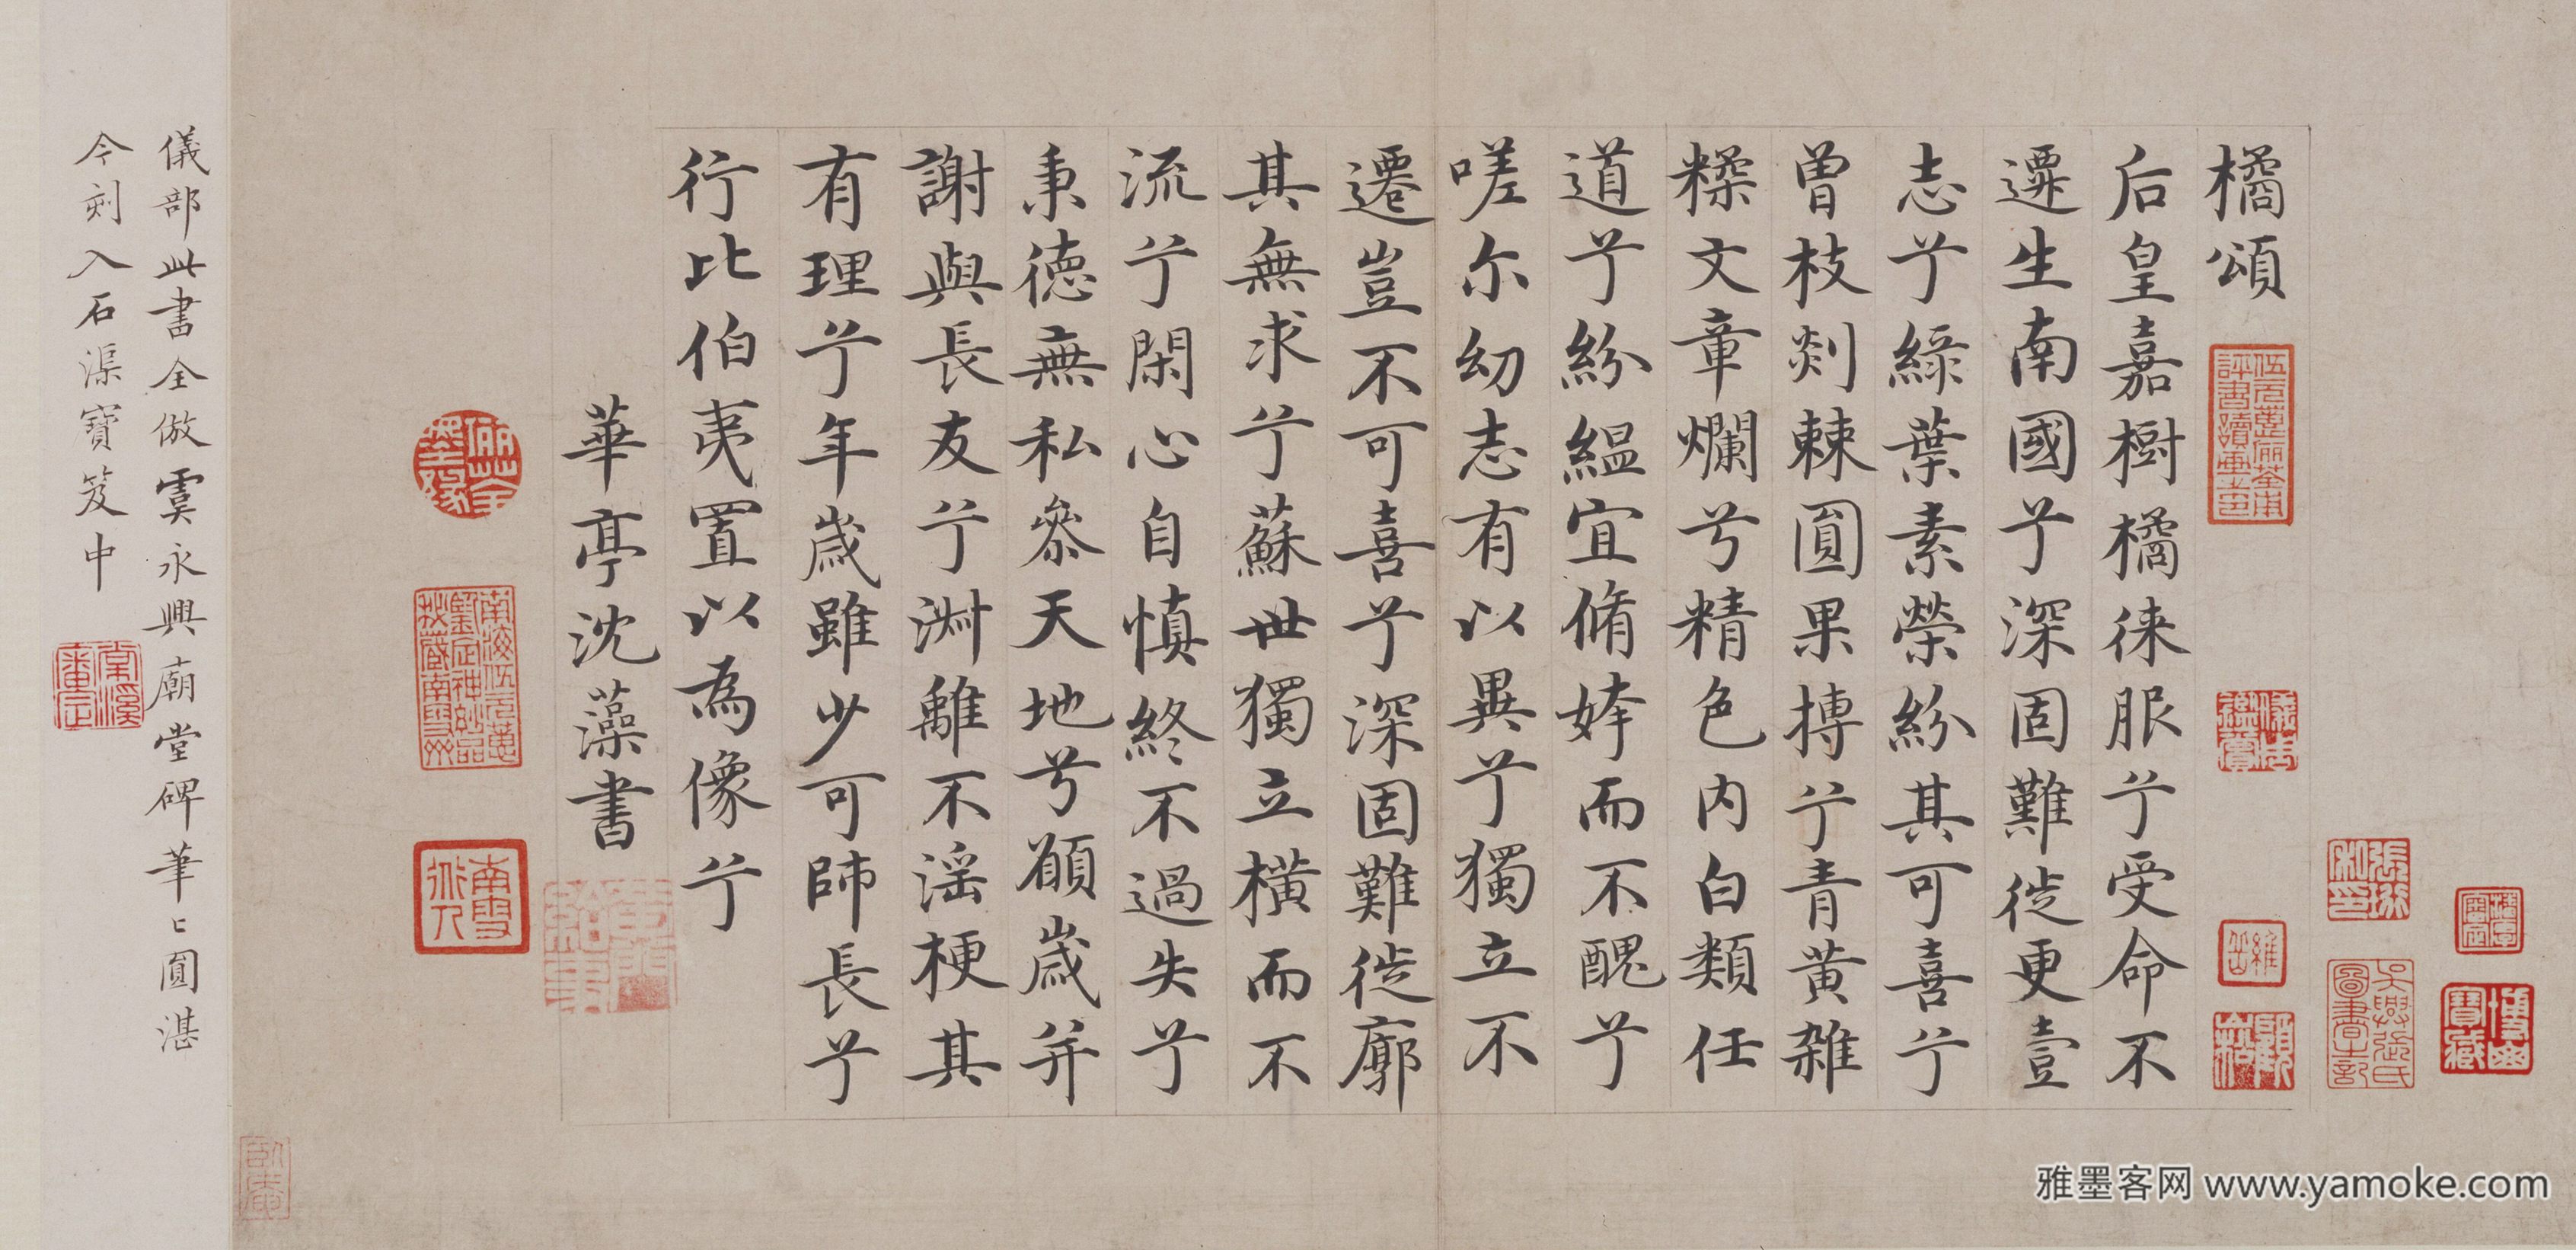 橘頌
后皇嘉樹橘徕服兮受命不
遷生南國兮深固難徙更壹
志兮綠葉素榮紛其可喜兮
曽枝剡棘圎果摶兮青黄雜
糅文章爛兮精色内白類任
道兮紛緼宜脩姱而不醜兮
嗟尔幼志有以異兮獨立不
遷豈不可喜兮深固難徙廓
其無求兮蘇世獨立橫而不
流兮閑心自慎終不過失兮
秉德無私叅天地兮願歲并
謝與長友兮淑離不滛梗其
有理兮年歲雖少可師長兮
行比伯夷置以為像兮
華亭沈藻書
儀部此書全倣虞永興廟堂碑筆〻圎湛
今刻入石渠寶笈中
雅墨客网 www.yamoke.com